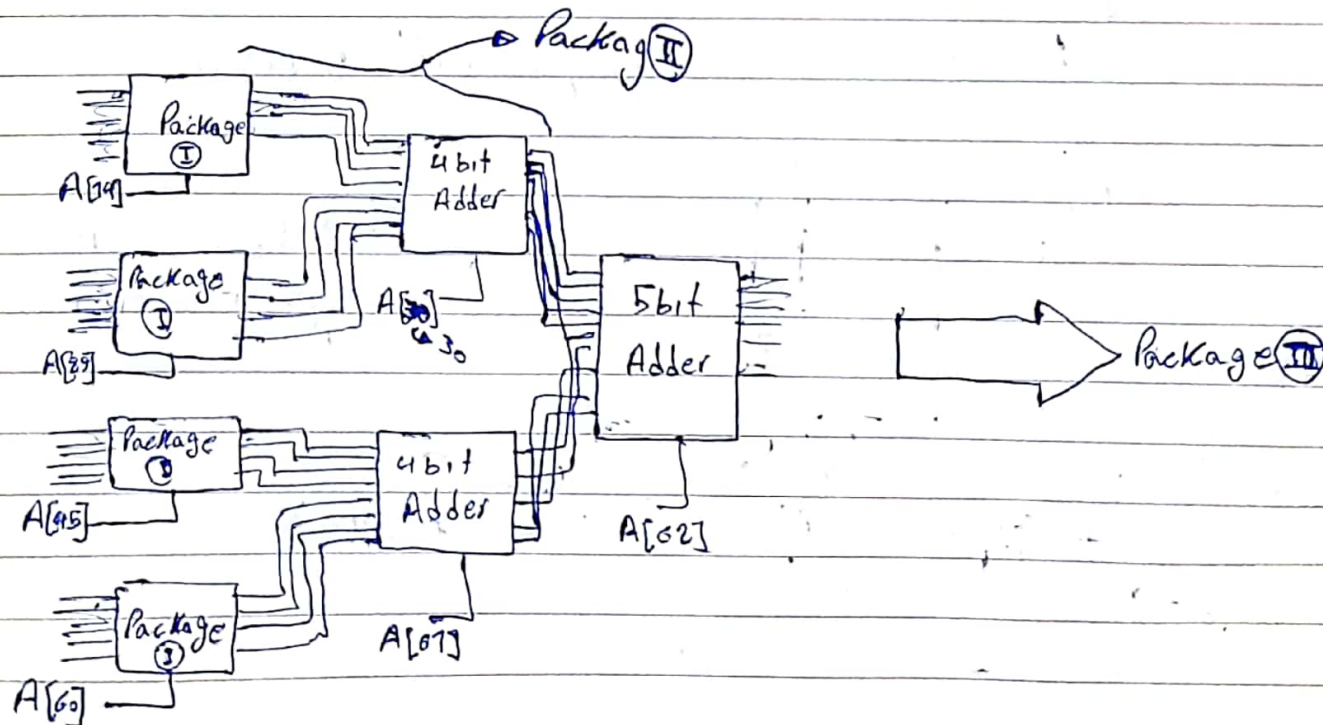 Packag II
Package
I
A[14]
4bit
Adder
Package
I
A[29]
A[30]
30
5bit
Adder
Package III
Package
I
A[45]
4bit
Adder
A[62]
Package
I
A[60]
A[61]